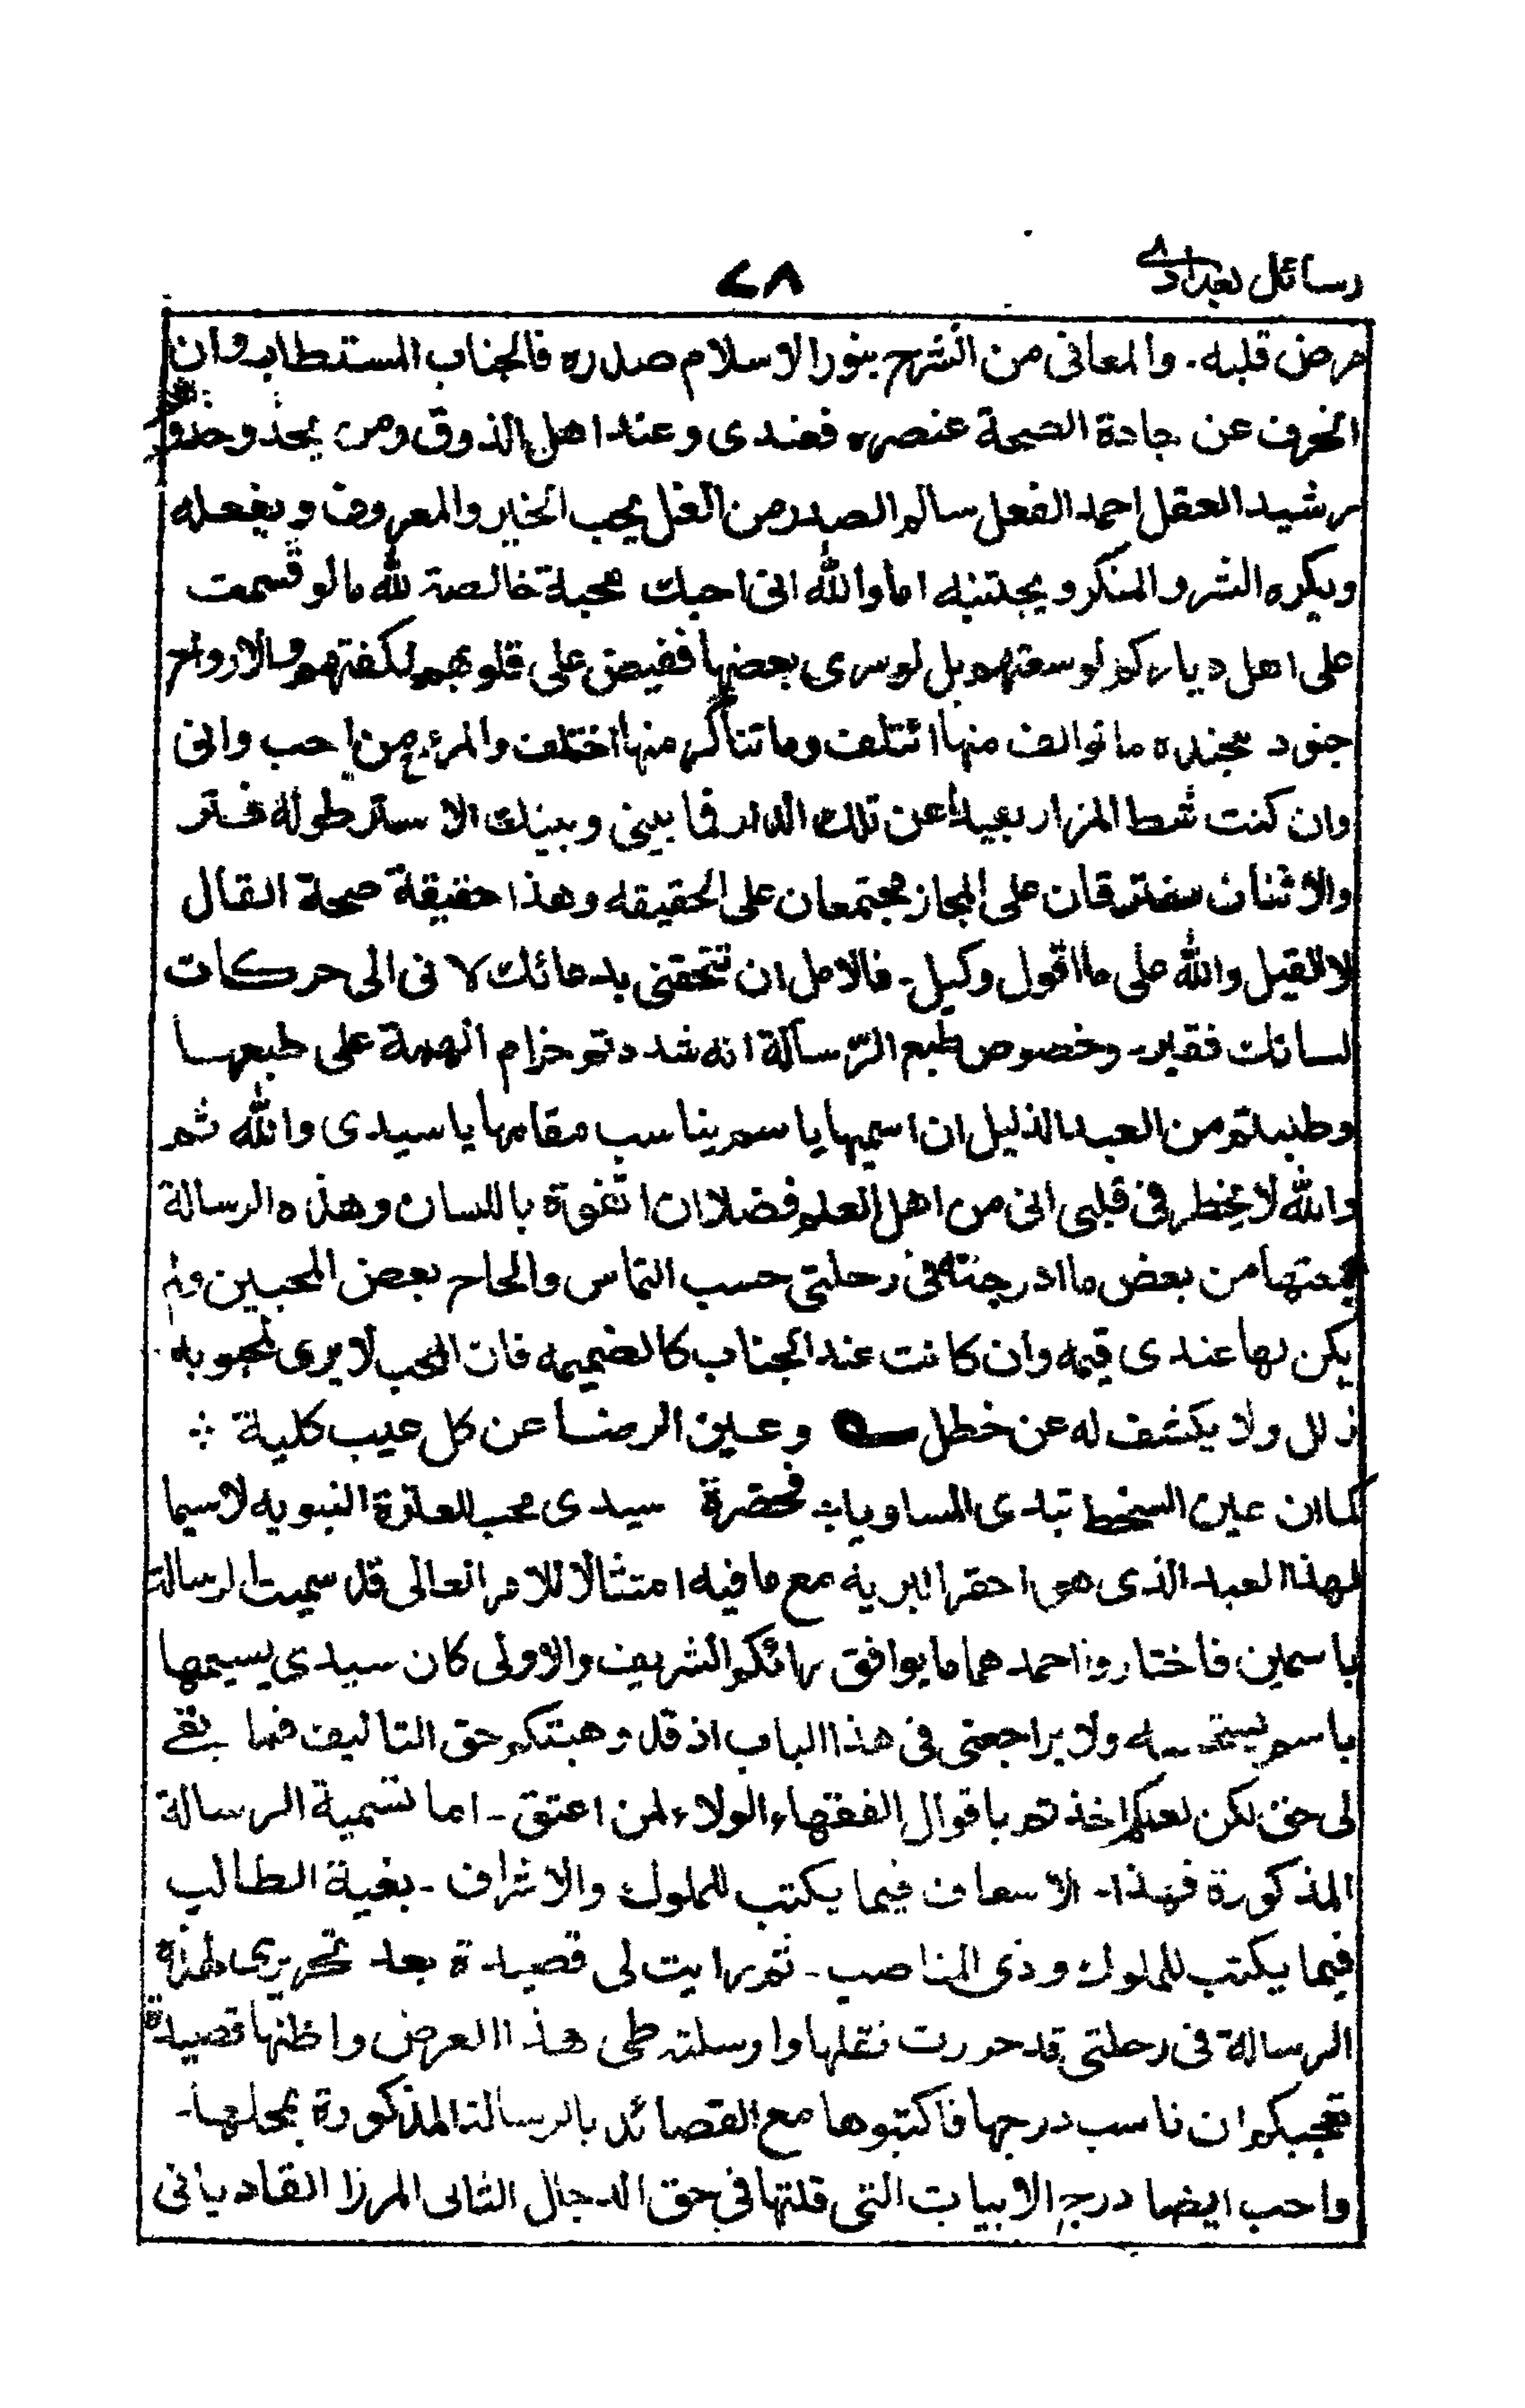 رسائل بغدادے
٧٨
مرض قلبه. والمعانى من انشرح بنور الاسلام صدره فالجناب المستطاب وان
انحرف عن جادة الصحة عنصره فعندى وعند اهل الذوق ومن يحذو حذو
رشيد العقل احمد الفعل سالم الصدر من الغل يحب الخير والمعروف ويفعله
ويكره الشر والمنكر ويجتنبه اما والله انى احبك محبة خالصة لله مالو قسمت
على اهل دياركم لوسعتهم بل لو سرى بعضها ففيض على قلوبهم لكفتهم والارواح
جنود مجنده ما توالف منها ائتلف وما تناكر منها اختلف والمرء مع من احب وانى
وان كنت شط المزار بعيدا عن تلك الدار فما بينى وبينك الا ستر طوله فتر
والاثنان مفترقان على المجاز مجتمعان على الحقيقه وهذا حقيقة صحة القال
لا القيل والله على ما اقول وكيل۔ فالامل ان تتحقنى بدعائك لانى الى حركات
لسانك فقير۔ وخصوص طبع الرسالة انه شددتم حزام الهمة على طبعها
وطلبتم من العبد الذليل ان اسميها باسم يناسب مقامها يا سيدى والله ثم
والله لا يخطر فى قلبى انى من اهل العلم فضلا ان اتفوة باللسان وهذه الرسالة
جمعتها من بعض ما ادرجته فى رحلتى حسب التماس والحاح بعض المحبين ولم
يكن لها عندى قيمه وان كانت عند الجناب كالضميمه فان المحب لا يرى لمحبوبه
زلل ولا يكشف له عن خطل ے وعين الرضا عن كل عيب كلية ؞
كما ان عين السخط تبدى المساويا؞ فحضرة سيدى محب العترة النبويه لاسيما
لهذا العبد الذى هو احقر البريه مع ما فيه امتثالا للامر العالى قد سميت الرسالة
باسمين فاختاروا احمدهما ما يوافق رائكم الشريف والاولى كان سيدى يسيمها
باسم يستحسنه ولا يراجعنى فى هذا الباب اذ قد وهبتكم حق التاليف فما بقے
لى حق لكن لعلكم اخذتم باقوال الفقهاء الولاء لمن اعتق۔ اما تسمية الرسالة
المذكورة فهذا۔ الاسعاف فيما يكتب للملوك والاشراف۔ بغية الطالب
فيما يكتب للملوك وذى المناصب۔ ثم رايت لى قصيدة بعد تحريرى لهذه
الرسالة فى رحلتى قد حررت نقلها وارسلته طى هذا العرض واظنها قصيدة
تعجبكم ان ناسب درجها فاكتبوها مع القصائد بالرسالة المذكورة بمحلها۔
واحب ايضا درج الابيات التى قلتها فى حق الدجال الثانى المرزا القاديانى